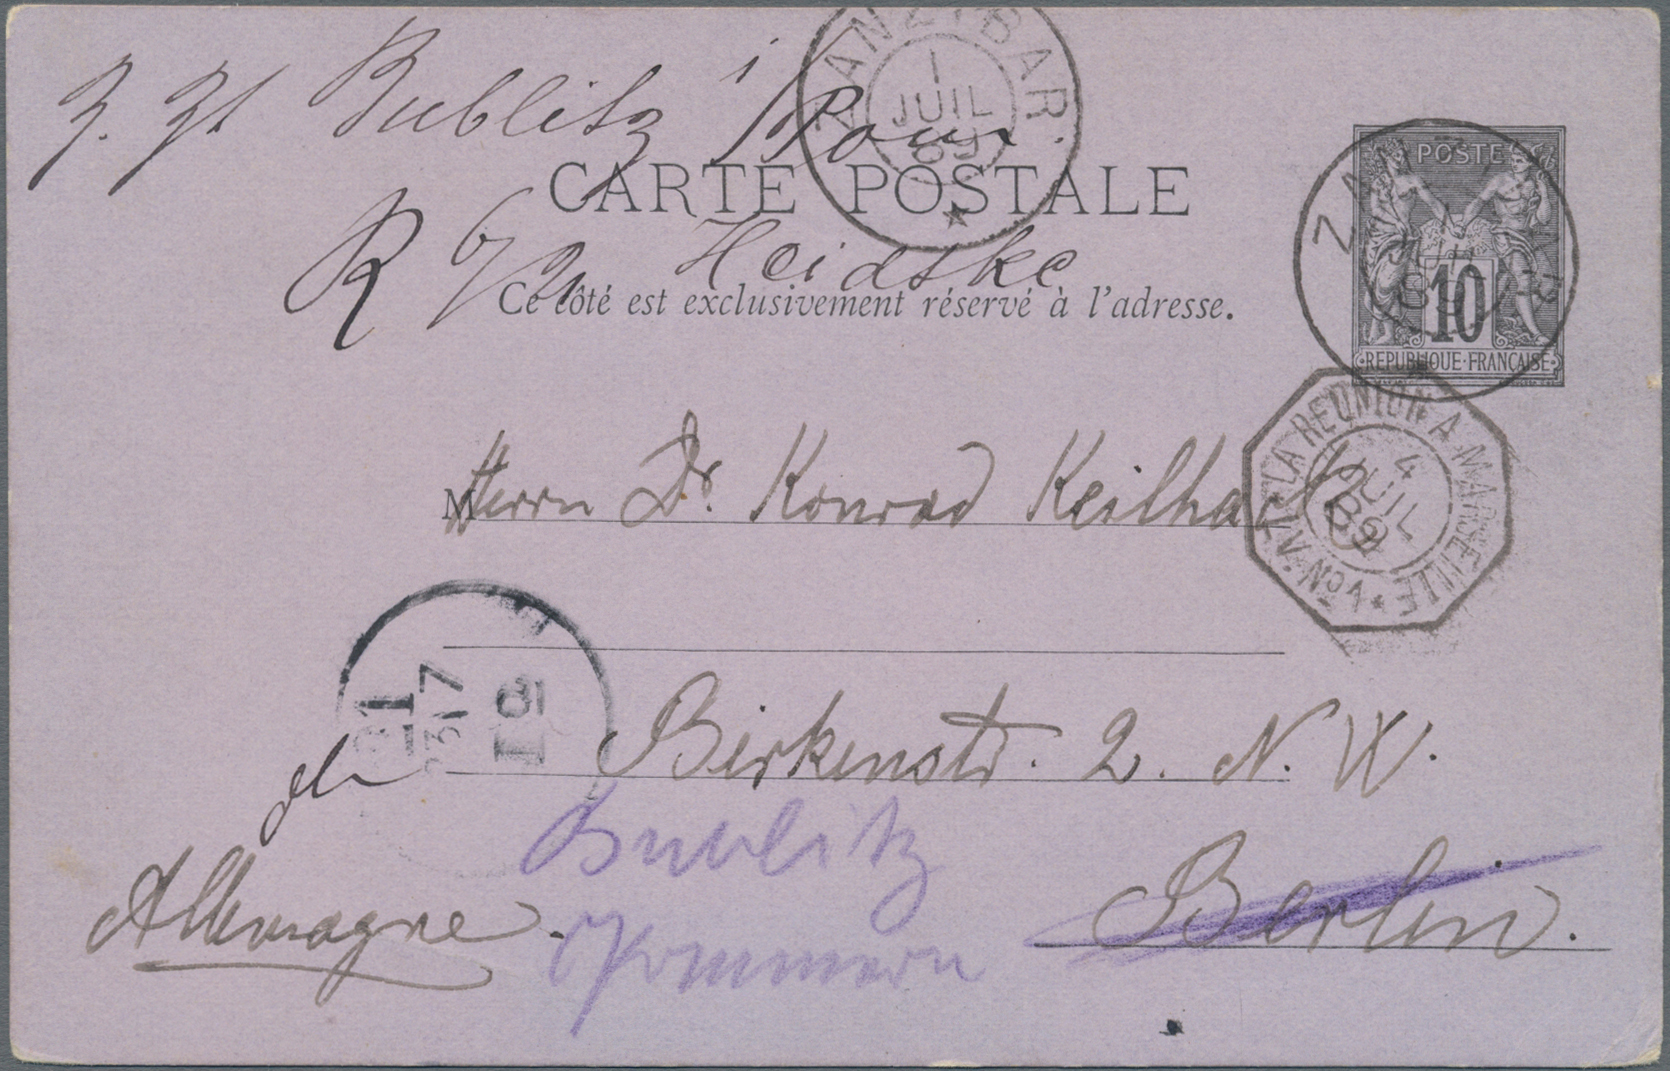 z. Zt Bublitz i/Pom
ZANZIBAR
1
JUIL
89
CARTE POSTALE
R 6/21 Heidtke
Ce côté est exclusivement réservé à l'adresse.
POSTE
10
REPUBLIQUE·FRANÇAISE
LA REUNION A MARSEILLE
4
JUIL
89
M Herrn Dr. Konrad Keilhack
Birkenstr. 2. N. W.
Bublitz
Berlin.
Allemagne.
Pommern